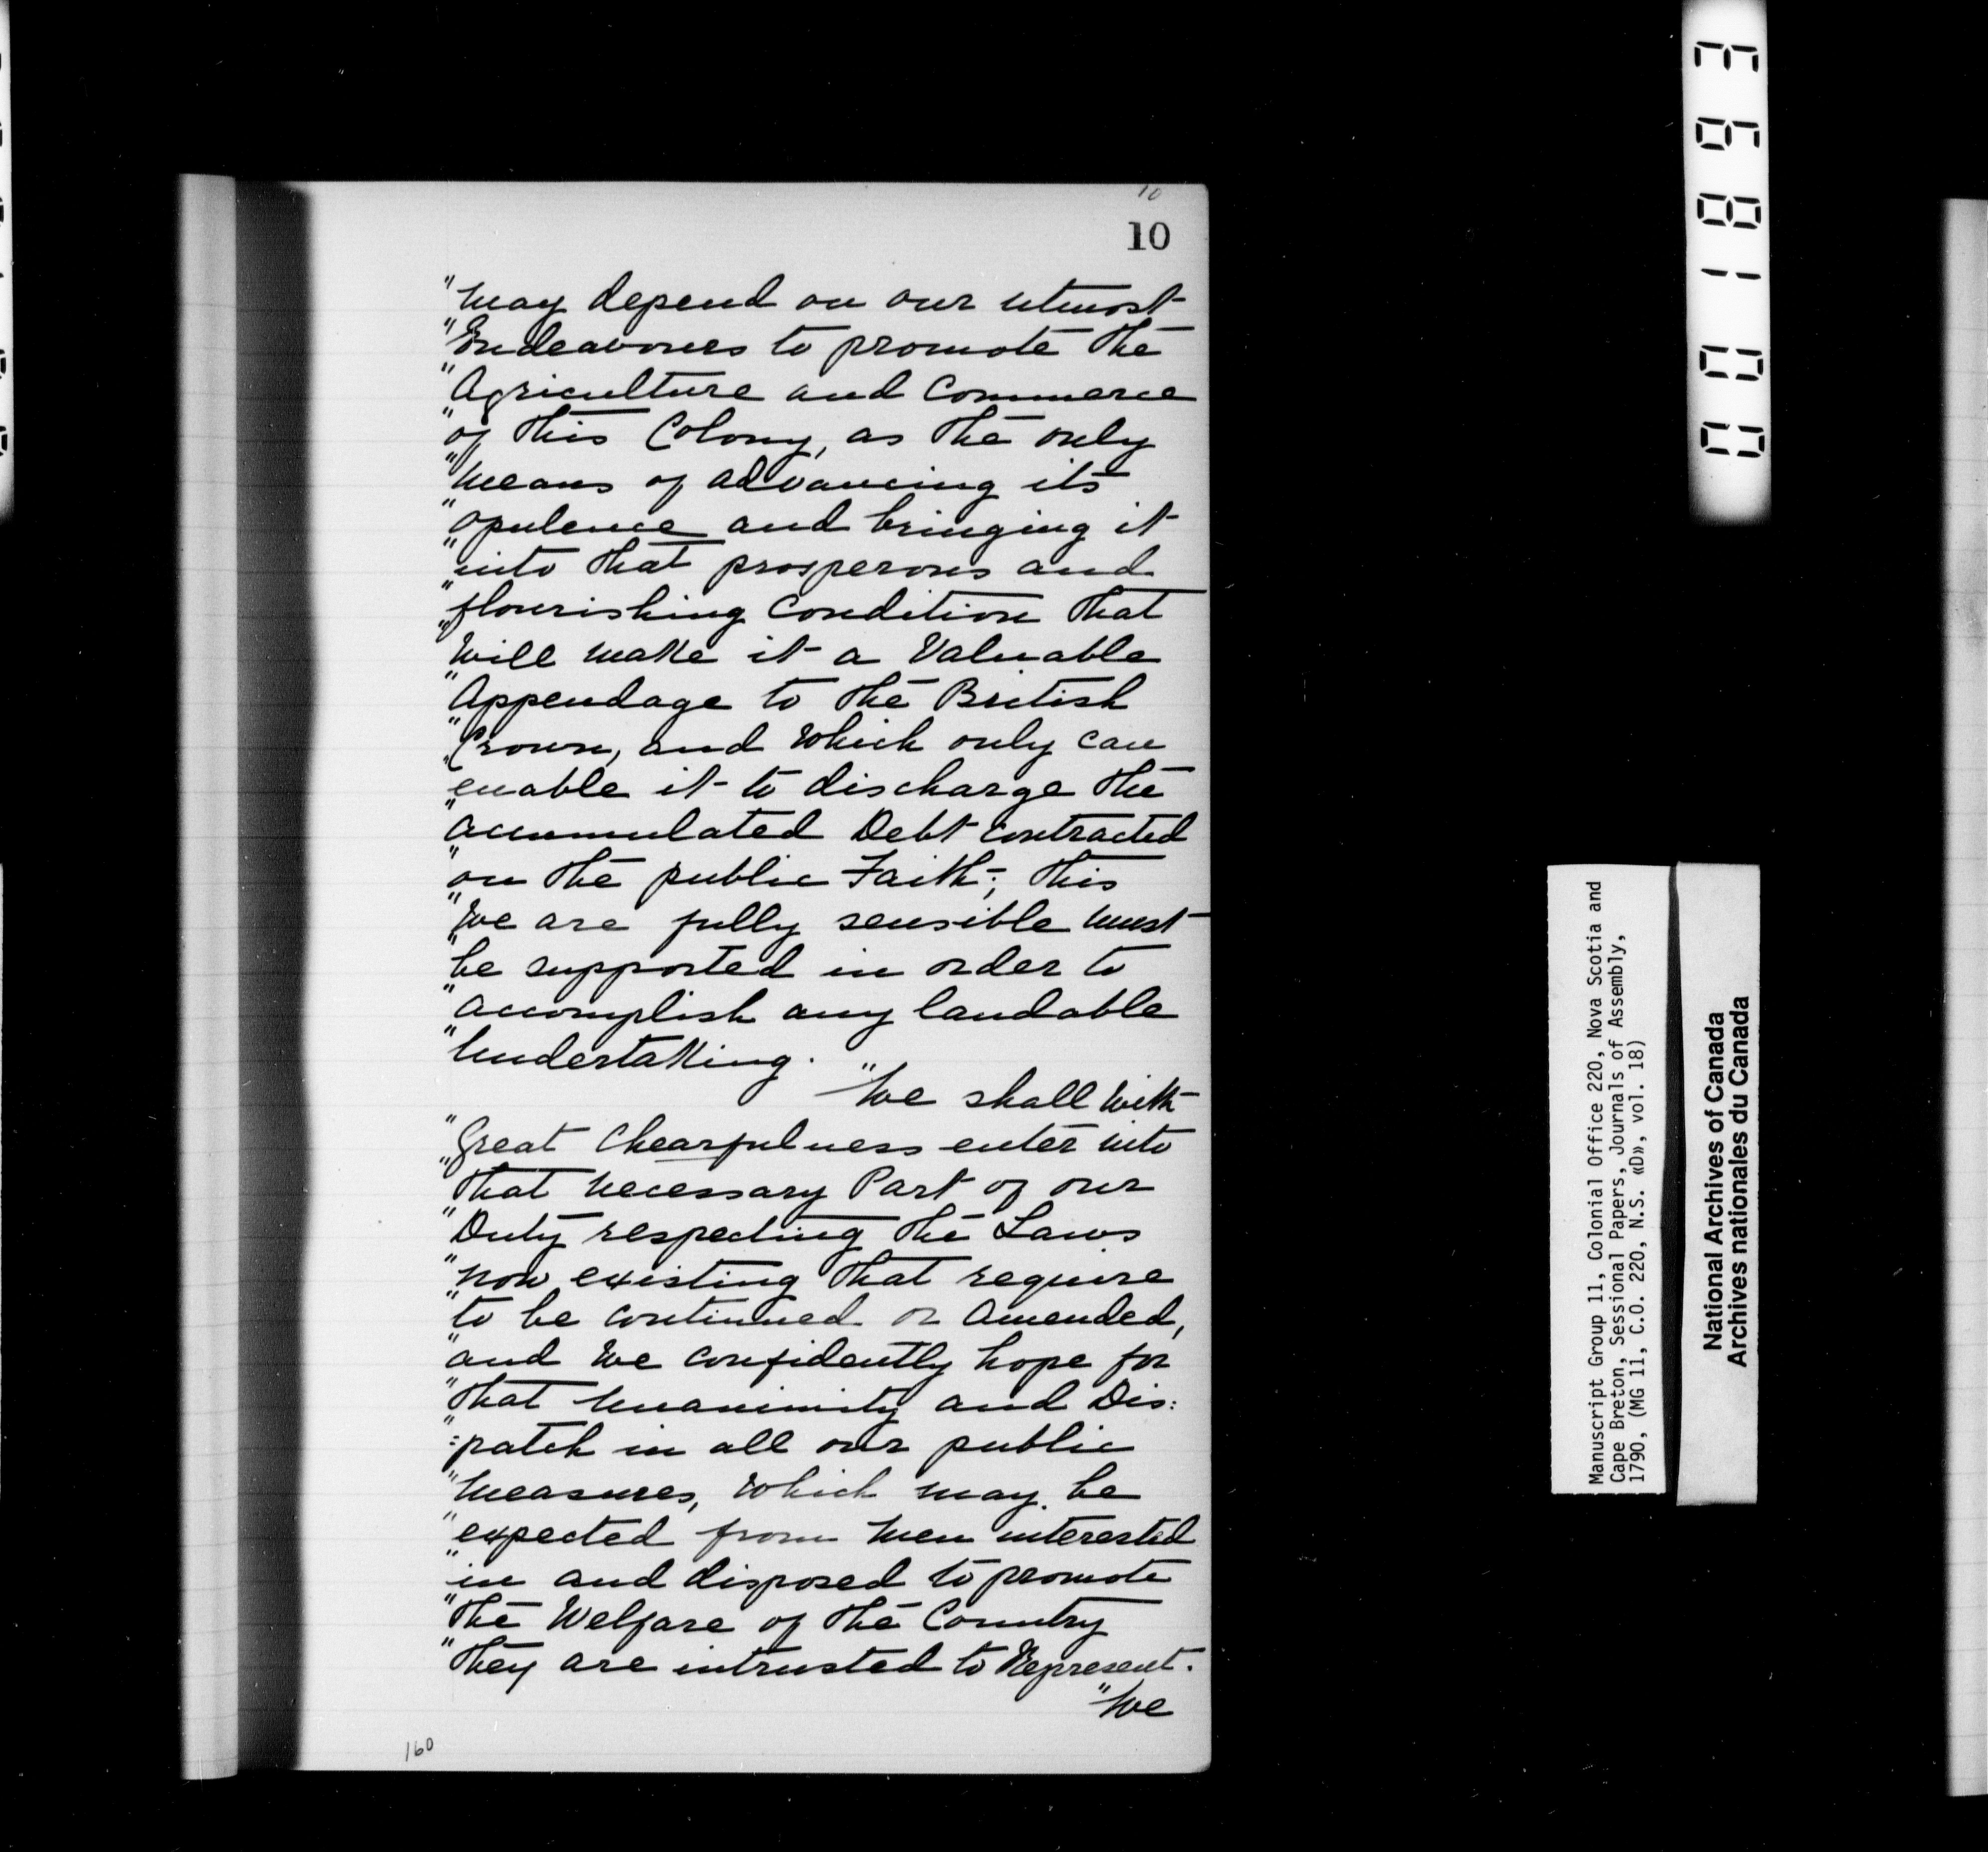 10
10
"may depend on our utmost
"Endeavours to promote the
"Agriculture and Commerce
"of this Colony, as the only
"means of advancing its
"opulence and bringing it
"into that prosperous and
"flourishing Condition that
"Will make it a Valuable
"Appendage to the British
"Crown, and Which only can
"enable it to discharge the
"accumulated Debt contracted
"on the public Faith; this
"We are fully sensible must
"be supported in order to
"accomplish any laudable
"Undertaking.
"We shall With
"Great Chearfulness enter into
"that necessary Part of our
"Duty respecting the Laws
"now existing that require
"to be continued or Amended,
"and We confidently hope for
"that Unanimity and Dis:
":patch in all our public
"Measures, Which may be
"expected from Men interested
"in and disposed to promote
"the Welfare of the Country
"they are intrusted to Represent.
"We
160
0018693
Manuscript Group 11, Colonial Office 220, Nova Scotia and
Cape Breton, Sessional Papers, Journals of Assembly,
1790, (MG 11, C.O. 220, N.S. «D», vol. 18)
National Archives of Canada
Archives nationales du Canada